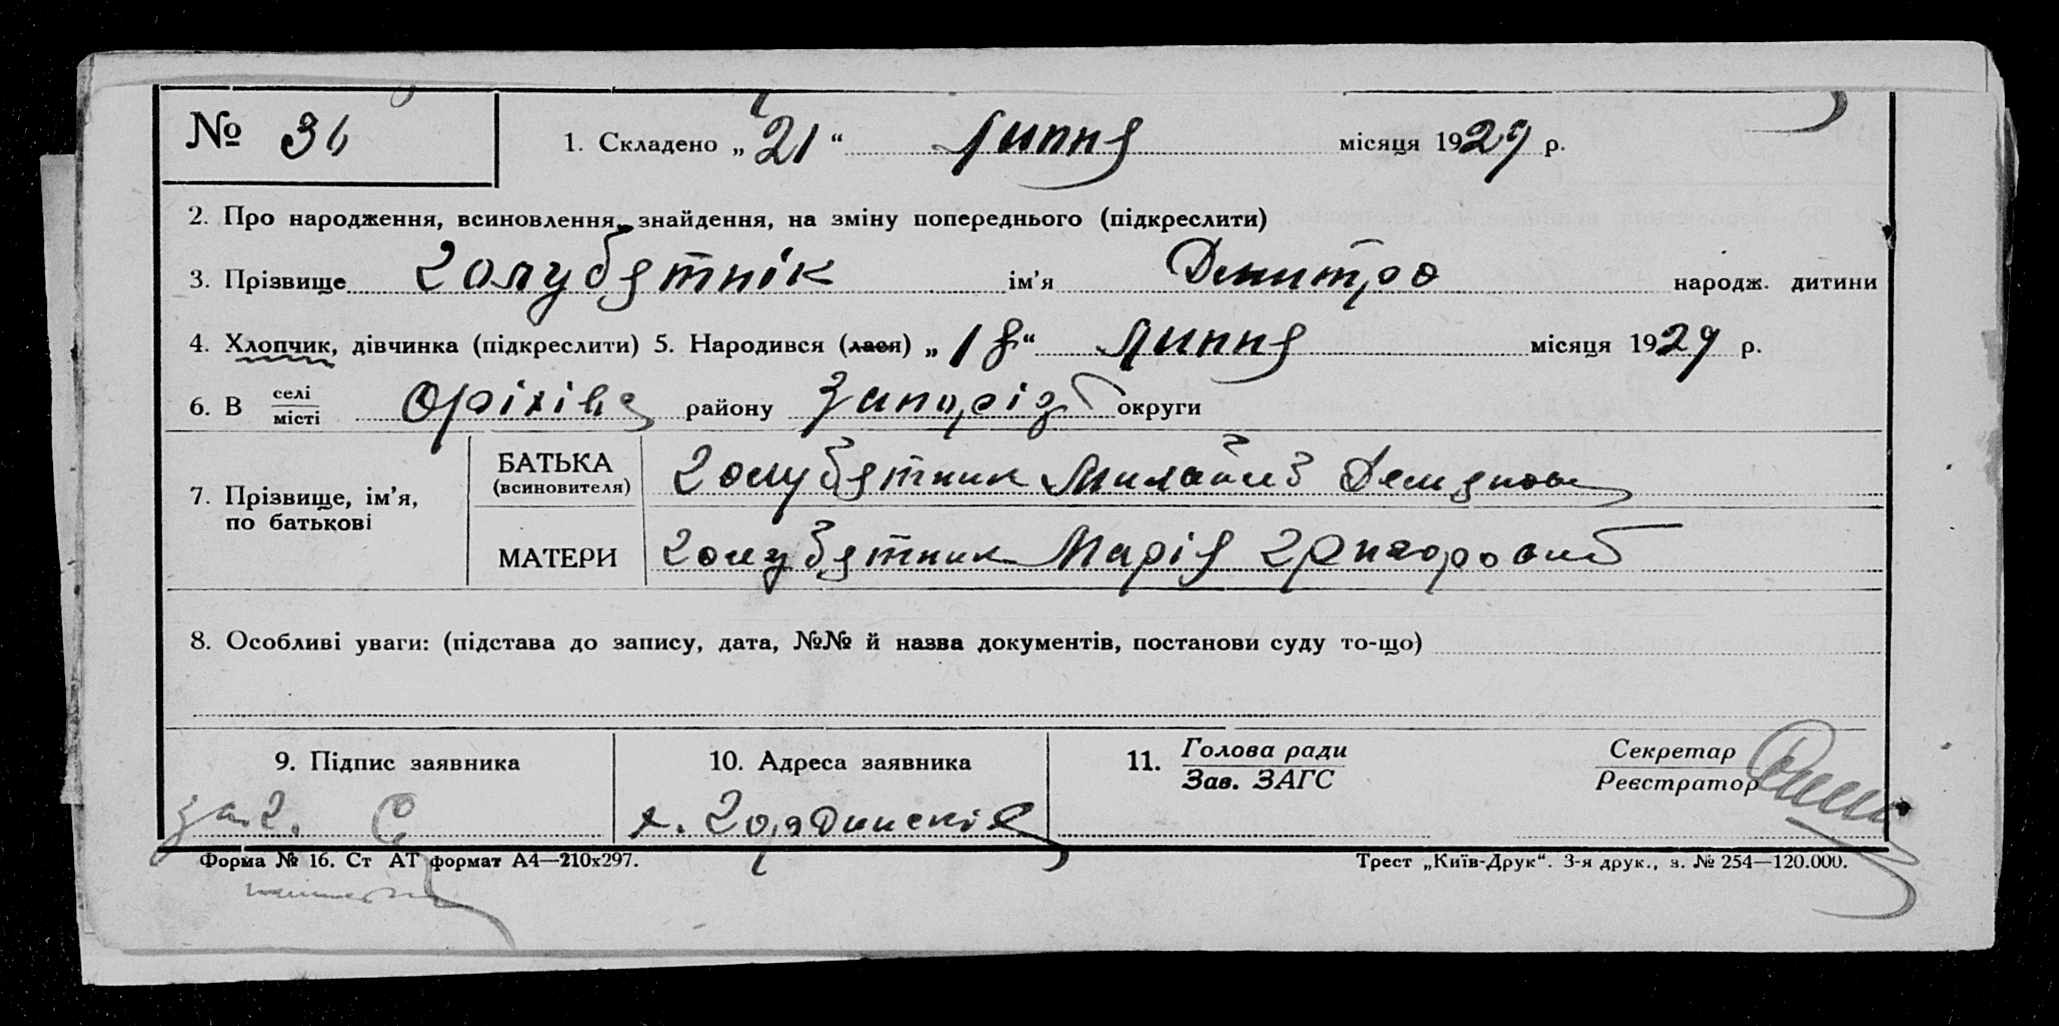 № 36
1. Складено „21“ липня місяця 1929 р.
2. Про народження, всиновлення, знайдення, на зміну попереднього (підкреслити)
3. Прізвище Голубятнік ім’я Демитро народж. дитини
4. Хлопчик, дівчинка (підкреслити) 5. Народився (лася) „18“ липня місяця 1929 р.
6. В селі
місті Оріхівс району Запоріз округи
7. Прізвище, ім’я, по батькові
БАТЬКА (всиновителя) Голубятник Михайло Демянов
МАТЕРИ Голубятник Марія Григоровн
8. Особливі уваги: (підстава до запису, дата, №№ й назва документів, постанови суду то-що)
9. Підпис заявника 10. Адреса заявника 11. Голова ради
Зав. ЗАГС Секретар
Реєстратор
Форма № 16. Ст АТ формат А4—210х297. Трест „Київ-Друк“. 3-я друк., з. № 254—120.000.